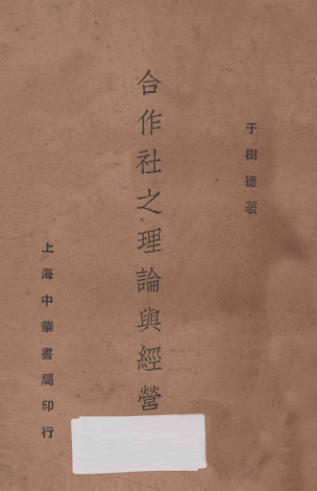 于樹德著
合作社之理論與經營
上海中華書局印行